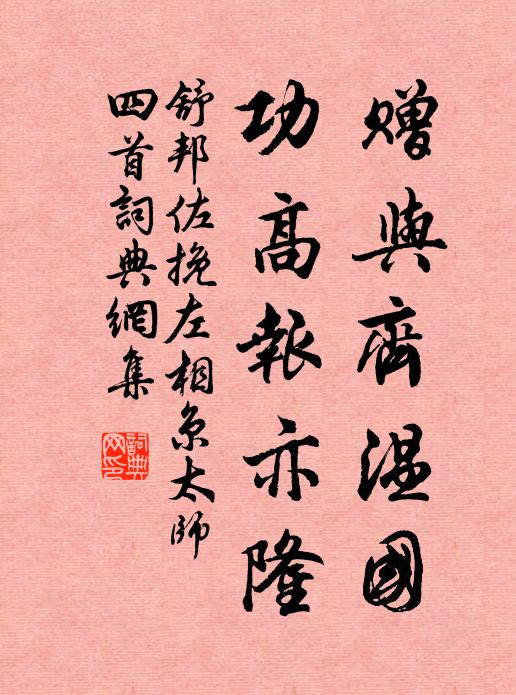 贈與齊温國
功高報亦隆
舒邦佐挽左相京太師
四首詞典網集
詞典
网印